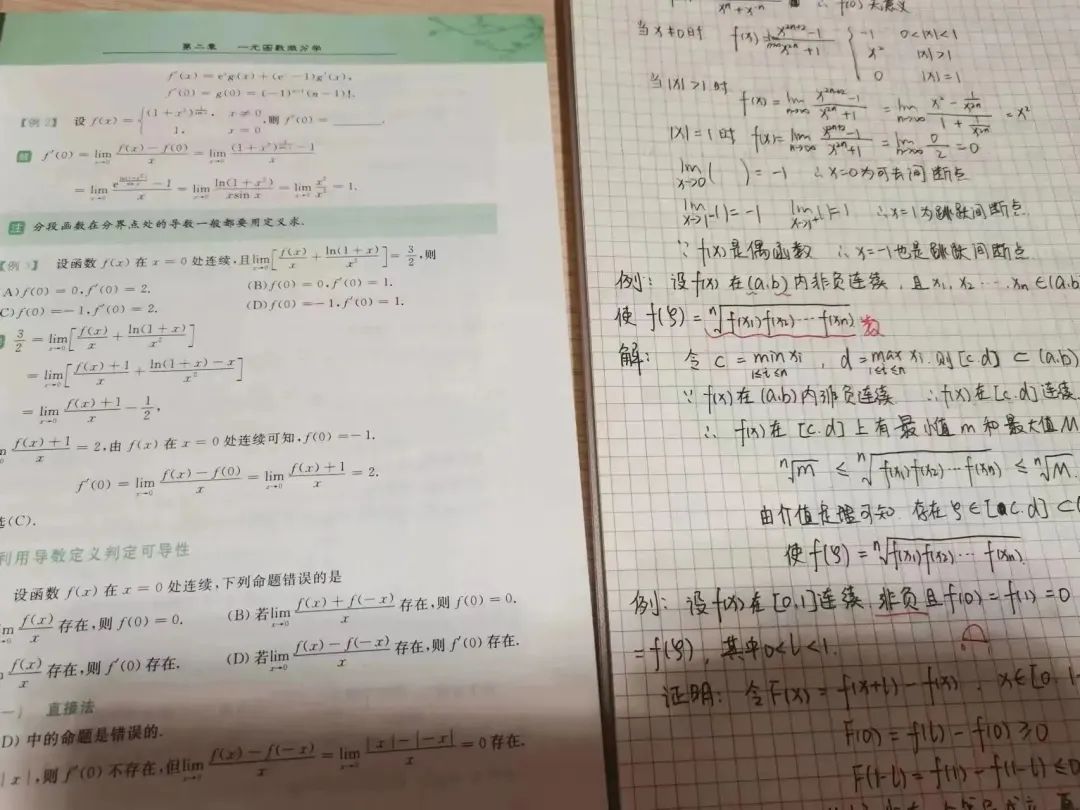 第二章 一元函数微分学
f'(x) = e^x g(x) + (e^x − 1)g'(x),
f'(0) = g(0) = (−1)^{n−1}(n−1)!.
【例2】 设 f(x) = { (1+x²)^{1/}, x≠0, 1, x=0, 则 f'(0) = ______.
解 f'(0) = lim_{x→0} (f(x)−f(0))/x = lim_{x→0} ((1+x²)^{1/}−1)/x
= lim_{x→0} (e^{ln(1+x²)/}−1)/x = lim_{x→0} ln(1+x²)/(x sin x) = lim_{x→0} x²/x² = 1.
注 分段函数在分界点处的导数一般都要用定义求.
【例3】 设函数 f(x) 在 x = 0 处连续,且lim_{x→0}[f(x)/x + ln(1+x)/x²] = 3/2,则
(A) f(0) = 0, f'(0) = 2. (B) f(0) = 0, f'(0) = 1.
(C) f(0) = −1, f'(0) = 2. (D) f(0) = −1, f'(0) = 1.
3/2 = lim_{x→0}[f(x)/x + ln(1+x)/x²]
= lim_{x→0}[(f(x)+1)/x + (ln(1+x)−x)/x²]
= lim_{x→0} (f(x)+1)/x − 1/2,
(f(x)+1)/x = 2,由 f(x) 在 x = 0 处连续可知, f(0) = −1.
f'(0) = lim_{x→0} (f(x)−f(0))/x = lim_{x→0} (f(x)+1)/x = 2.
选(C).
利用导数定义判定可导性
设函数 f(x) 在 x = 0 处连续,下列命题错误的是
f(x)/x 存在,则 f(0) = 0. (B) 若lim_{x→0} (f(x)+f(−x))/x 存在,则 f(0) = 0.
f(x)/x 存在,则 f'(0) 存在. (D) 若lim_{x→0} (f(x)−f(−x))/x 存在,则 f'(0) 存在.
一) 直接法
D) 中的命题是错误的.
|x|,则 f'(0) 不存在,但lim_{x→0} (f(x)−f(−x))/x = lim_{x→0} (|x|−|−x|)/x = 0 存在.
x^n + x^{-n} ∴ f(0) 无意义
当 x≠0时 f(x) = lim_{n→∞} (x^{2n+2}−1)/(x^{2n}+1) { −1 0<|x|<1
x² |x|>1
0 |x|=1
当 |x|>1 时 f(x) = lim_{n→∞} (x^{2n+2}−1)/(x^{2n}+1) = lim_{n→∞} (x² − 1/x^{2n})/(1 + 1/x^{2n}) = x²
|x|=1时 f(x) = lim_{n→∞} (x^{2n+2}−1)/(x^{2n}+1) = lim_{n→∞} 0/2 = 0
lim_{x→0}( ) = −1 ∴ x=0为可去间断点
lim_{x→1^-}( ) = −1 lim_{x→1^+} = 1 ∴ x=1为跳跃间断点.
∵ f(x)是偶函数 ∴ x=−1也是跳跃间断点
例: 设f(x) 在 (a,b) 内非负连续, 且 x₁, x₂ ⋯ xn ∈ (a,b
使 f(ξ) = ⁿ√(f(x₁)f(x₂)⋯f(xn))
解: 令 c = min_{1≤i≤n} xi , d = max_{1≤i≤n} xi 则 [c,d] ⊂ (a,b)
∵ f(x)在 (a,b)内非负连续 ∴ f(x)在 [c,d] 连续.
∴ f(x)在 [c,d] 上有最小值 m 和最大值 M
ⁿ√m ≤ ⁿ√(f(x₁)f(x₂)⋯f(xn)) ≤ ⁿ√M
由介值定理可知 存在 ξ∈[c,d] ⊂ (
使 f(ξ) = ⁿ√(f(x₁)f(x₂)⋯ f(xn)).
例: 设 f(x) 在 [0,1]连续, 非负且 f(0) = f(1) = 0
= f(ξ), 其中 0<l<1.
证明: 令 F(x) = f(x+l) − f(x), x∈[0, 1-
F(0) = f(l) − f(0) ≥ 0
F(1−l) = f(1) − f(1−l) ≤ 0